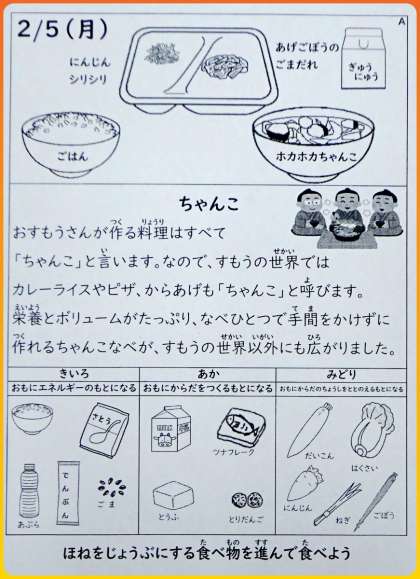 2/5(月)
A
にんじん
シリシリ
あげごぼうの
ごまだれ
ぎゅう
にゅう
ごはん
ホカホカちゃんこ
ちゃんこ
おすもうさんが作る料理はすべて
「ちゃんこ」と言います。なので、すもうの世界では
カレーライスやピザ、からあげも「ちゃんこ」と呼びます。
栄養とボリュームがたっぷり、なべひとつで手間をかけずに
作れるちゃんこなべが、すもうの世界以外にも広がりました。
きいろ
おもにエネルギーのもとになる
あか
おもにからだをつくるもとになる
みどり
おもにからだのちょうしをととのえるもとになる
さとう
あぶら
でんぷん
ごま
ツナフレーク
とうふ
とりだんご
だいこん
はくさい
にんじん
ねぎ
ごぼう
ほねをじょうぶにする食べ物を進んで食べよう